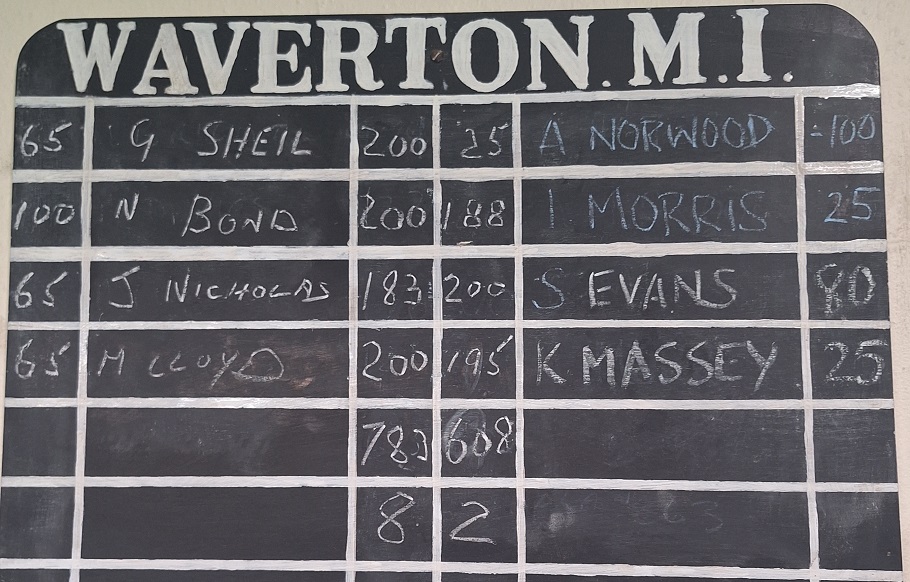 WAVERTON. M.I.
65 G SHEIL 200 25 A NORWOOD -100
100 N BOND 200 188 I MORRIS 25
65 J NICHOLAS 183 200 S EVANS 90
65 M LLOYD 200 195 K MASSEY 25
783 608
8 2